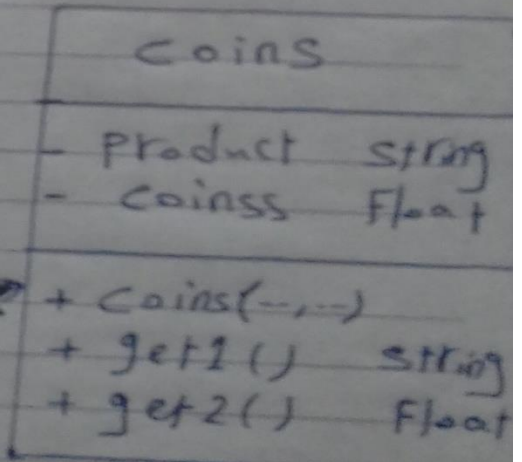 coins
- product string
- coinss Float
+ coins(--,--)
+ get1() string
+ get2() Float